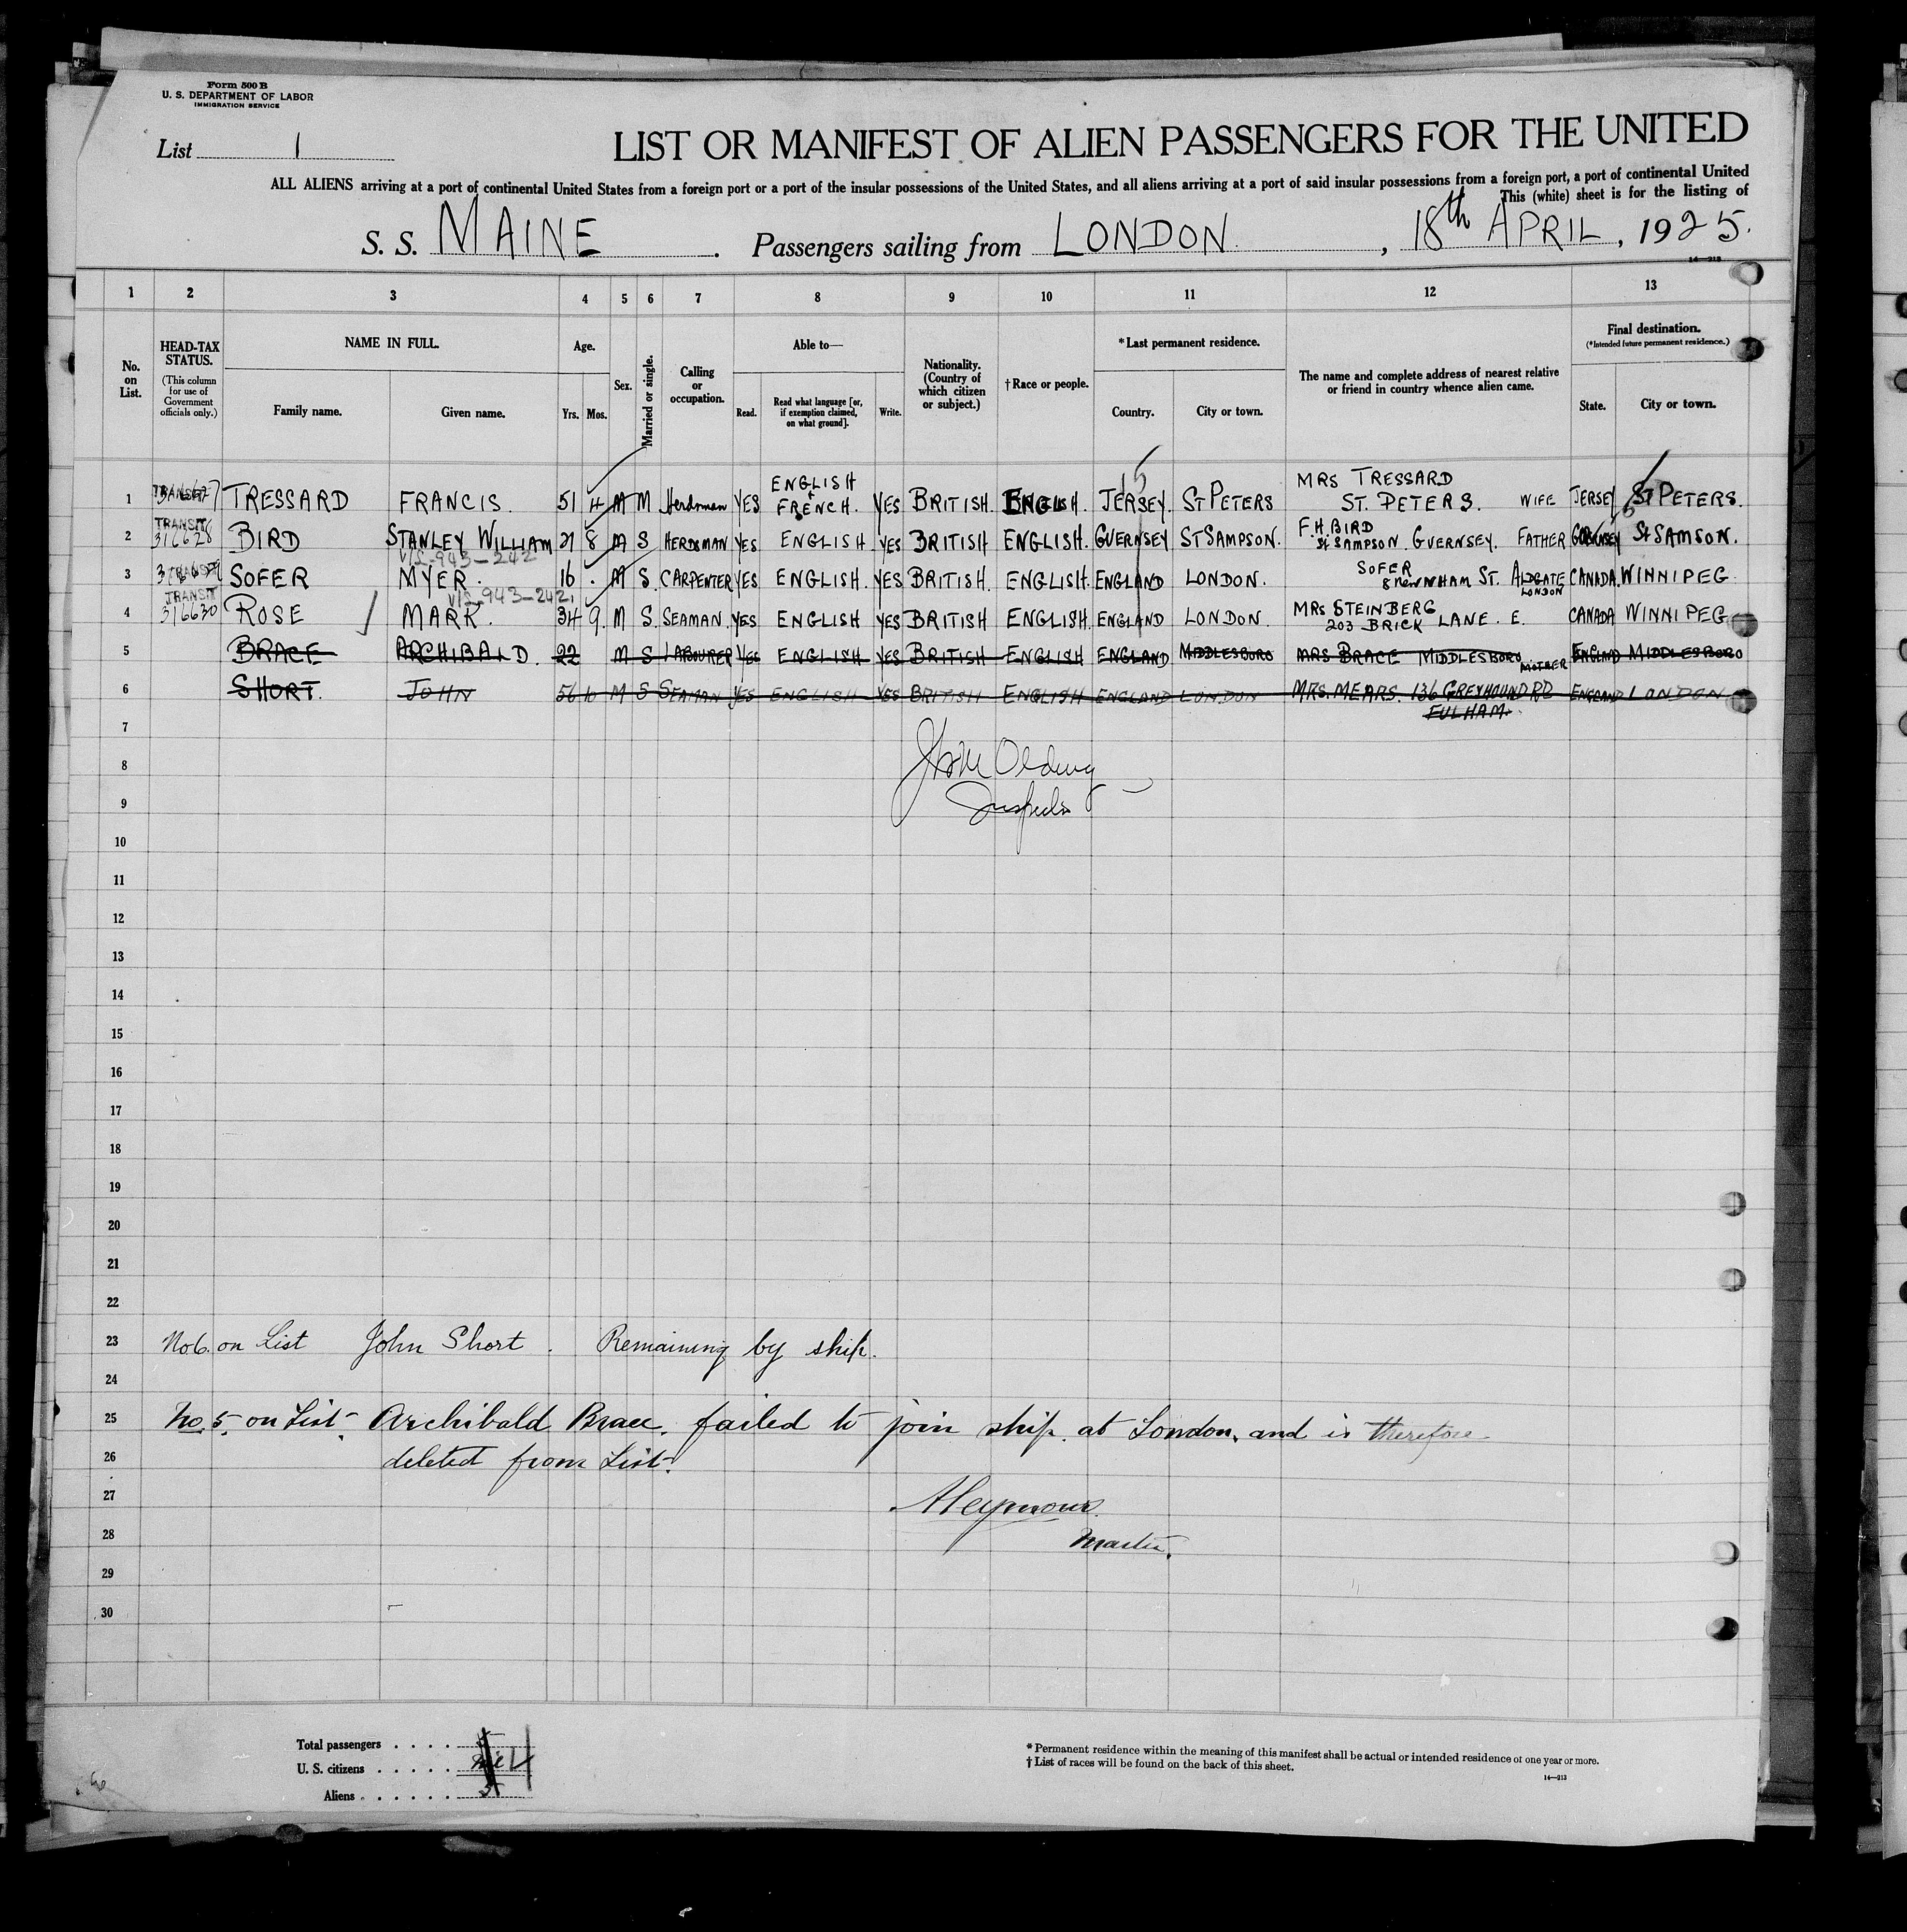 Form 500 B
U. S. DEPARTMENT OF LABOR
IMMIGRATION SERVICE
List 1
LIST OR MANIFEST OF ALIEN PASSENGERS FOR THE UNITED
ALL ALIENS arriving at a port of continental United States from a foreign port or a port of the insular possessions of the United States, and all aliens arriving at a port of said insular possessions from a foreign port, a port of continental United
This (white) sheet is for the listing of
S. S. MAINE. Passengers sailing from LONDON, 18th APRIL, 1925.
14—213
1 2 3 4 5 6 7 8 9 10 11 12 13
No. on List.
HEAD-TAX STATUS.
(This column for use of Government officials only.)
NAME IN FULL.
Family name. Given name.
Age.
Yrs. Mos.
Sex.
Married or single.
Calling or occupation.
Able to—
Read. Read what language [or, if exemption claimed, on what ground]. Write.
Nationality. (Country of which citizen or subject.)
† Race or people.
* Last permanent residence.
Country. City or town.
The name and complete address of nearest relative or friend in country whence alien came.
Final destination.
(*Intended future permanent residence.)
State. City or town.
1 TRESSARD FRANCIS. 51 4 M M Herdsman YES ENGLISH + FRENCH. YES BRITISH. ENGLISH. JERSEY. St PETERS MRS TRESSARD ST. PETERS. WIFE JERSEY St PETERS.
2 TRANSIT 316628 BIRD STANLEY WILLIAM 21 8 M S HERDSMAN YES ENGLISH YES BRITISH ENGLISH. GUERNSEY St SAMPSON. F.H. BIRD St SAMPSON. GUERNSEY. FATHER St SAMSON.
V/S-943-242
3 SOFER MYER. 16 . M S. CARPENTER YES ENGLISH. YES BRITISH. ENGLISH. ENGLAND LONDON. SOFER ST. ALDGATE LONDON CANADA. WINNIPEG
V/S-943-242
4 TRANSIT 316630 ROSE MARK. 34 9. M S. SEAMAN. YES ENGLISH YES BRITISH ENGLISH. ENGLAND LONDON. MRS STEINBERG 203 BRICK LANE. E. CANADA WINNIPEG
5 BRACE ARCHIBALD. 22 M S LABOURER YES ENGLISH YES BRITISH ENGLISH ENGLAND MIDDLESBORO MRS BRACE MIDDLESBORO MOTHER ENGLAND MIDDLESBORO
6 SHORT. JOHN 56 10 M S SEAMAN YES ENGLISH YES BRITISH ENGLISH ENGLAND LONDON MRS. MEARS. 136 GREYHOUND RD FULHAM. ENGLAND LONDON
7
8 Olding
9 Inspector
10
11
12
13
14
15
16
17
18
19
20
21
22
23 No 6. on List John Short. Remaining by ship.
24
25 No. 5. on List. Archibald Brace. failed to join ship. at London, and is therefore
26 deleted from List.
27
28 Master.
29
30
Total passengers
U. S. citizens
Aliens
4
* Permanent residence within the meaning of this manifest shall be actual or intended residence of one year or more.
† List of races will be found on the back of this sheet.
14—213